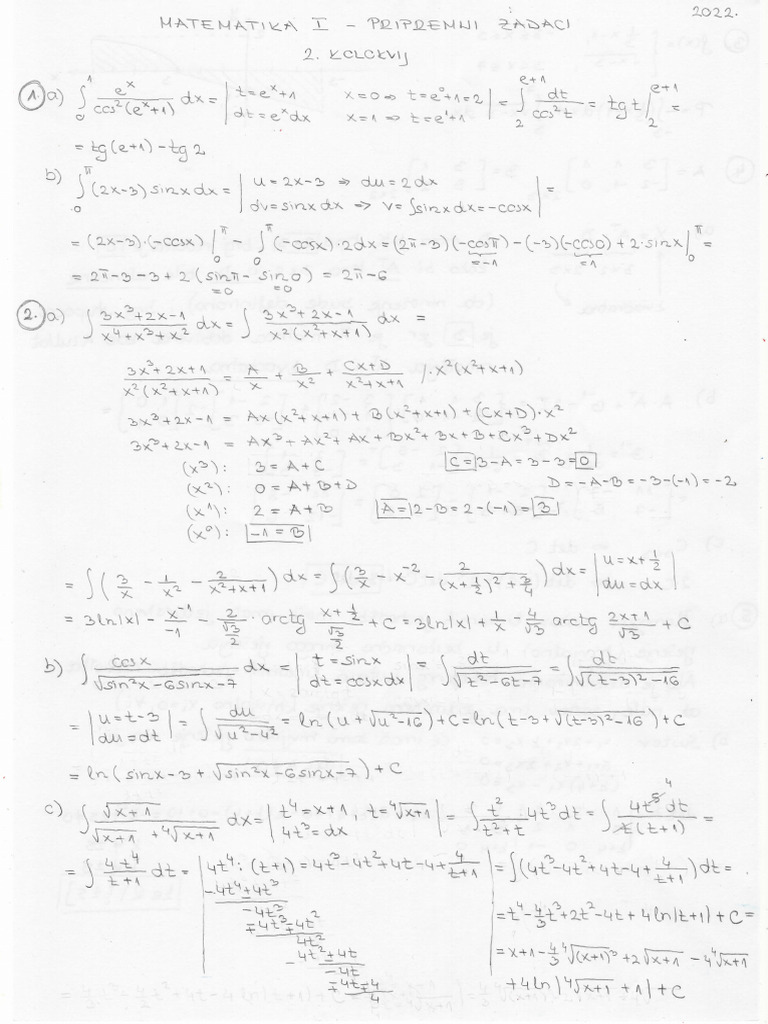 2022.
MATEMATIKA I - PRIPREMNI ZADACI
2. KOLOKVIJ
1. a) ∫₀¹ eˣ/cos²(eˣ+1) dx = | t=eˣ+1 x=0 ⇒ t=e⁰+1=2 | dt=eˣdx x=1 ⇒ t=e¹+1 | = ∫₂^(e+1) dt/cos²t = tg t |₂^(e+1) =
= tg(e+1) - tg 2
b) ∫₀^π (2x-3) sinx dx = | u=2x-3 ⇒ du=2dx | dv=sinxdx ⇒ v=∫sinxdx=-cosx | =
= (2x-3)·(-cosx) |₀^π - ∫₀^π (-cosx)·2dx = (2π-3)(-cosπ) - (-3)(-cos0) + 2·sinx |₀^π =
=-1 =1
= 2π-3-3+2(sinπ - sin0) = 2π-6
=0 =0
2. a) ∫ (3x³+2x-1)/(x⁴+x³+x²) dx = ∫ (3x³+2x-1)/(x²(x²+x+1)) dx =
(3x³+2x+1)/(x²(x²+x+1)) = A/x + B/x² + (Cx+D)/(x²+x+1) /·x²(x²+x+1)
3x³+2x-1 = Ax(x²+x+1) + B(x²+x+1) + (Cx+D)·x²
3x³+2x-1 = Ax³+Ax²+Ax+Bx²+Bx+B+Cx³+Dx²
(x³): 3=A+C C=3-A=3-3=0
(x²): 0=A+B+D D=-A-B=-3-(-1)=-2
(x¹): 2=A+B A=2-B=2-(-1)=3
(x⁰): -1=B
= ∫(3/x - 1/x² - 2/(x²+x+1)) dx = ∫(3/x - x⁻² - 2/((x+½)²+¾)) dx = | u=x+½ | du=dx |
= 3ln|x| - x⁻¹/-1 - 2/(√3/2) · arctg (x+½)/(√3/2) + C = 3ln|x| + 1/x - 4/√3 arctg (2x+1)/√3 + C
b) ∫ cosx/√(sin²x-6sinx-7) dx = | t=sinx | dt=cosxdx | = ∫ dt/√(t²-6t-7) = ∫ dt/√((t-3)²-16)
= | u=t-3 | du=dt | = ∫ du/√(u²-4²) = ln(u+√(u²-16))+C = ln(t-3+√((t-3)²-16))+C
= ln(sinx-3+√(sin²x-6sinx-7))+C
c) ∫ √(x+1)/(√(x+1)+⁴√(x+1)) dx = | t⁴=x+1, t=⁴√(x+1) | 4t³=dx | = ∫ t²/(t²+t) 4t³dt = ∫ 4t⁵ ⁴ dt/(t(t+1)) =
= ∫ 4t⁴/(t+1) dt = | 4t⁴ : (t+1) = 4t³-4t²+4t-4+4/(t+1) | = ∫(4t³-4t²+4t-4+4/(t+1))dt =
-4t⁴±4t³
-4t³
∓4t³∓4t²
4t² = t⁴-4/3t³+2t²-4t+4ln|t+1|+C =
-4t²±4t
-4t = x+1-4/3 ⁴√(x+1)³+2√(x+1)-4⁴√(x+1)
∓4t∓4
4 +4ln|⁴√(x+1)+1|+C